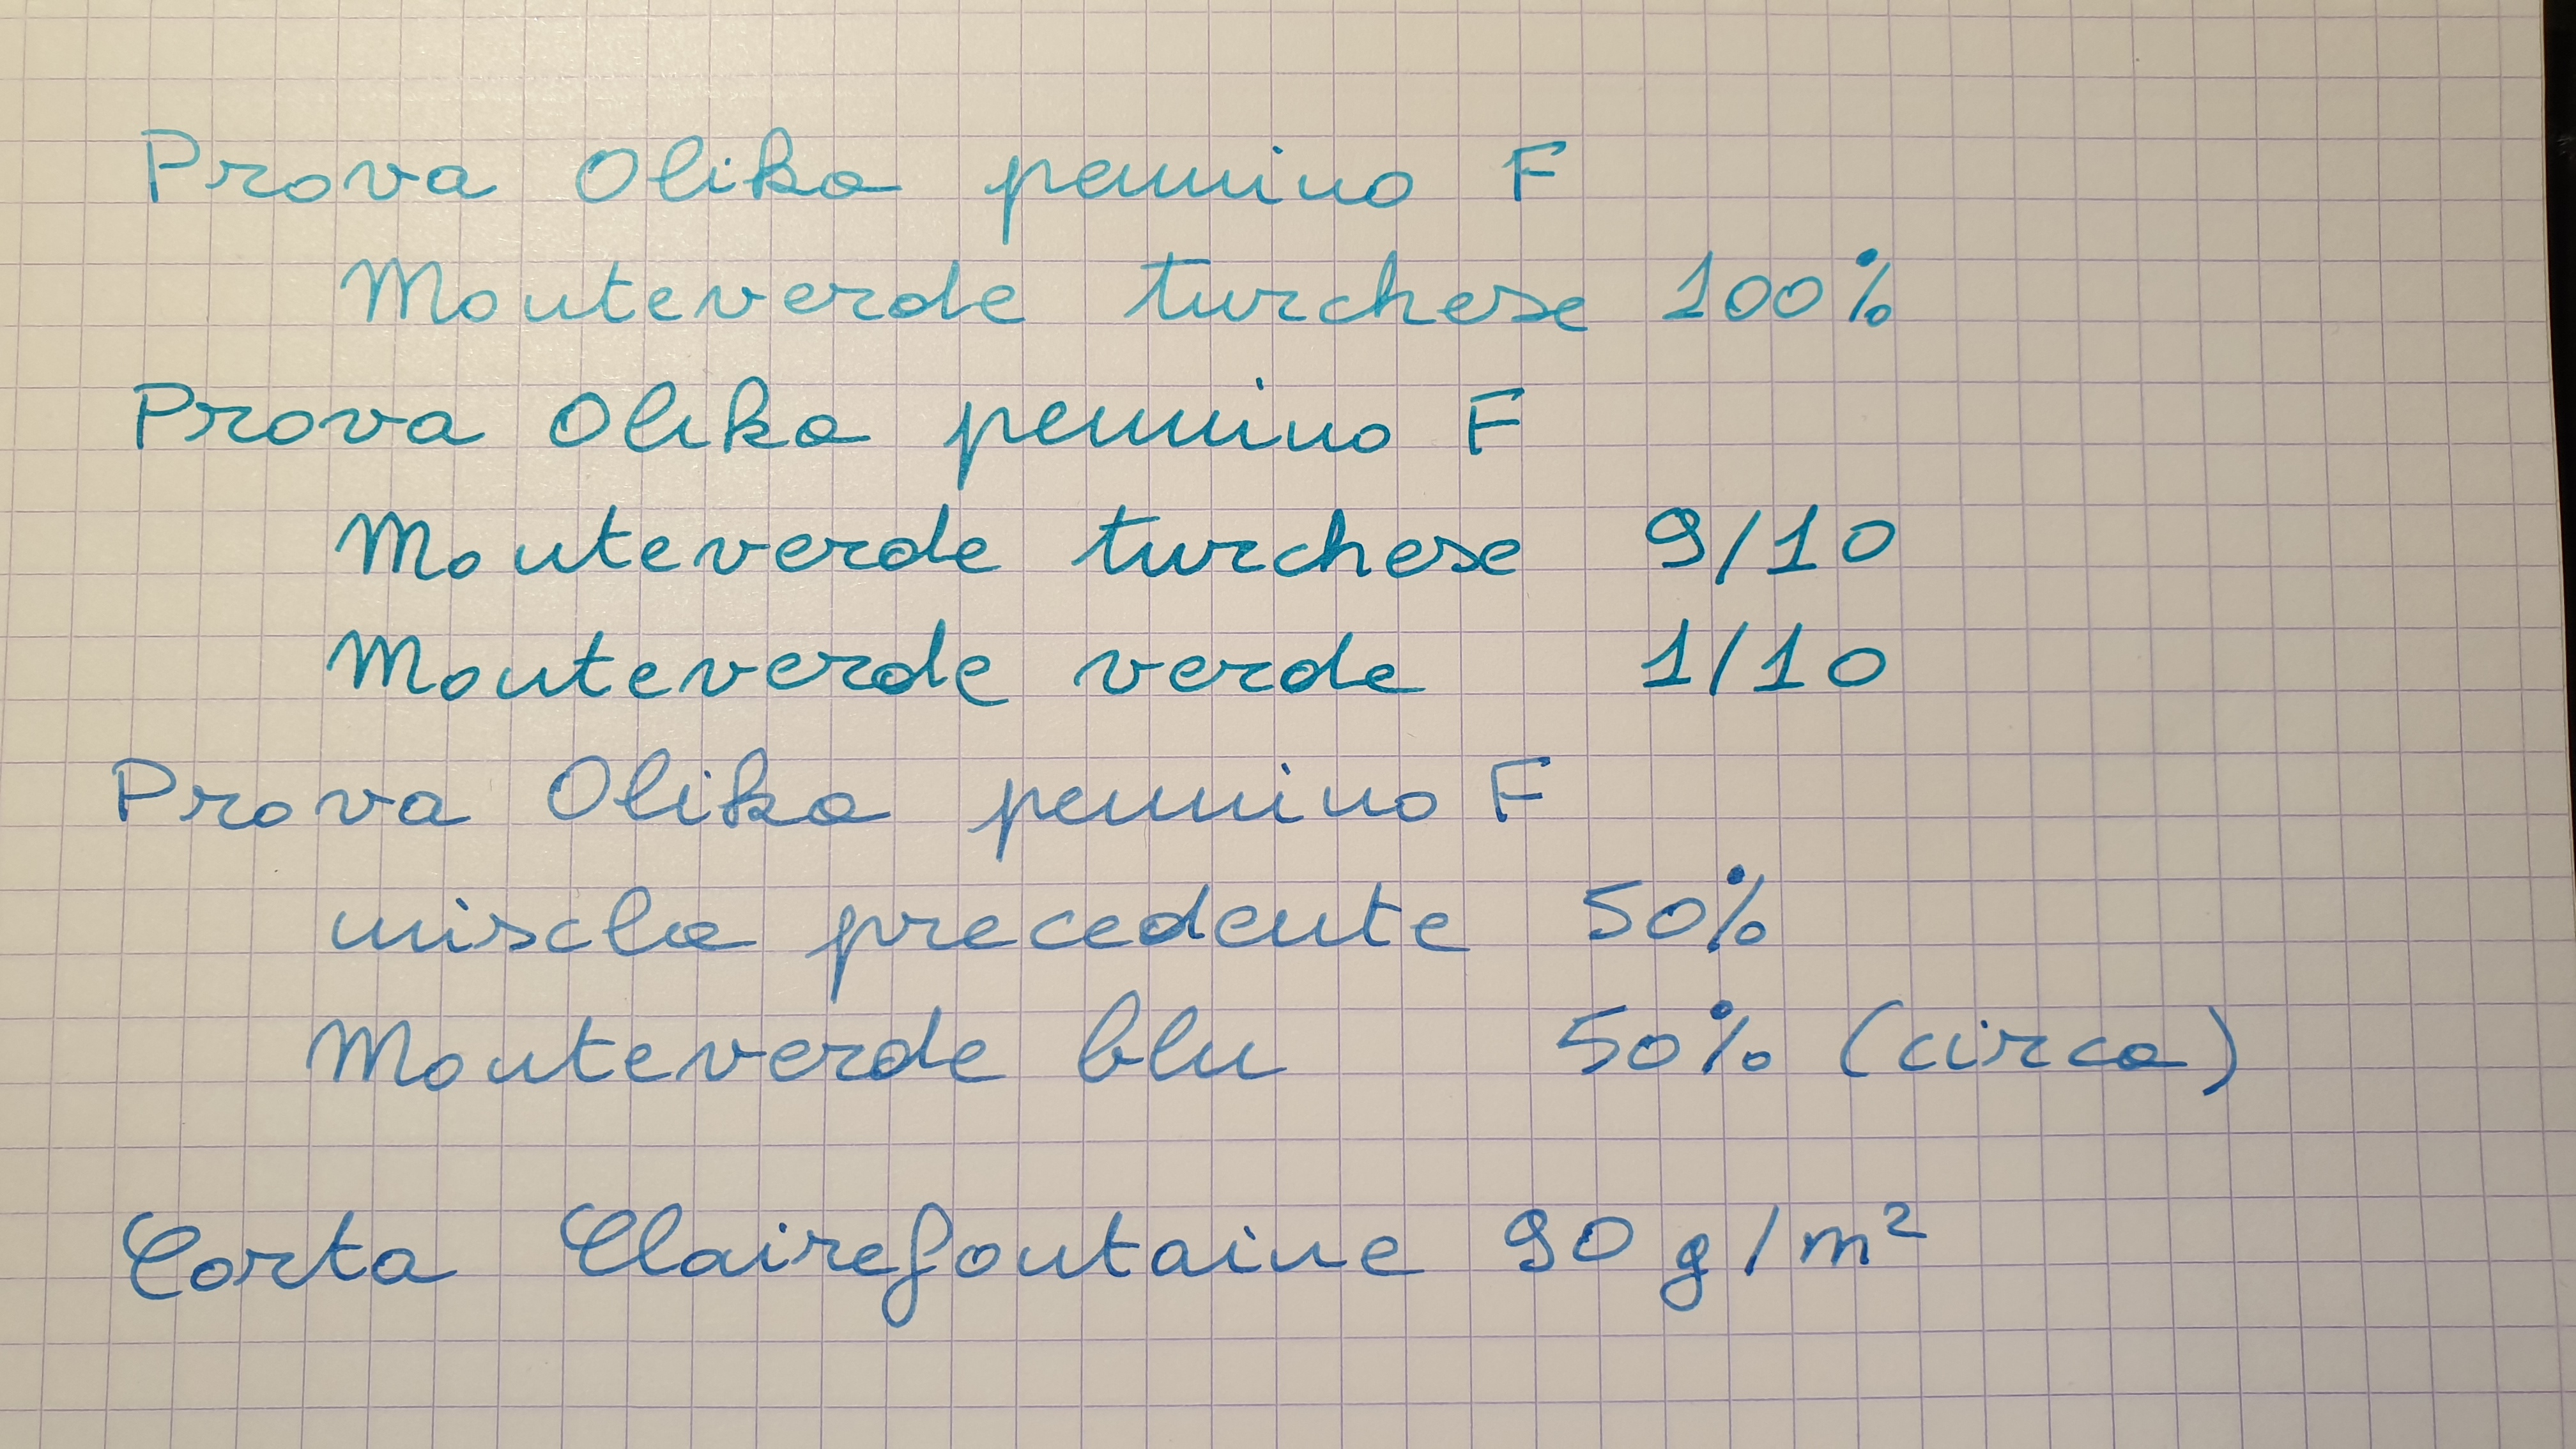 Prova Olika pennino F
Monteverde turchese 100%
Prova Olika pennino F
Monteverde turchese 9/10
Monteverde verde 1/10
Prova Olika pennino F
miscela precedente 50%
Monteverde blu 50% (circa)
Carta Clairefontaine 90 g/m²